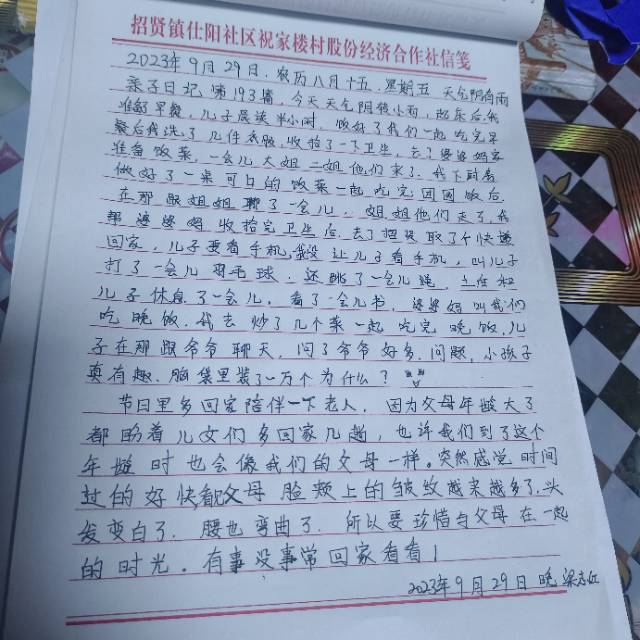 招贤镇仕阳社区祝家楼村股份经济合作社信笺
2023年9月29日.农历八月十五.星期五 天气阴有雨
亲子日记 第193篇，今天天气阴转小雨，起床后我
准备早餐，儿子晨读半小时，做好了我们一起吃完早
餐后我洗了几件衣服，收拾了一下卫生，去了婆婆妈家
准备饭菜，一会儿大姐二姐他们来了.我下厨房
做好了一桌可口的饭菜一起吃完团圆饭后.
在那跟姐姐聊了一会儿.姐姐他们走了.我
帮婆婆妈收拾完卫生后.去了招贤取了个快递
回家，儿子要看手机,我没让儿子看手机，叫儿子
打了一会儿羽毛球.还跳了一会儿绳，上午和
儿子休息了一会儿.看了一会儿书，婆婆妈叫我们
吃晚饭.我去炒了几个菜一起吃完晚饭,儿
子在那跟爷爷聊天，问了爷爷好多.问题，小孩子
真有趣.脑袋里装了一万个为什么？
节日里多回家陪伴一下老人，因为父母年龄大了
都盼着儿女们多回家几趟，也许我们到了这个
年龄时也会像我们的父母一样。突然感觉时间
过的好快,看父母脸颊上的皱纹越来越多了.头
发变白了.腰也弯曲了.所以要珍惜与父母在一起
的时光。有事没事常回家看看！
2023年9月29日 晚 梁志红